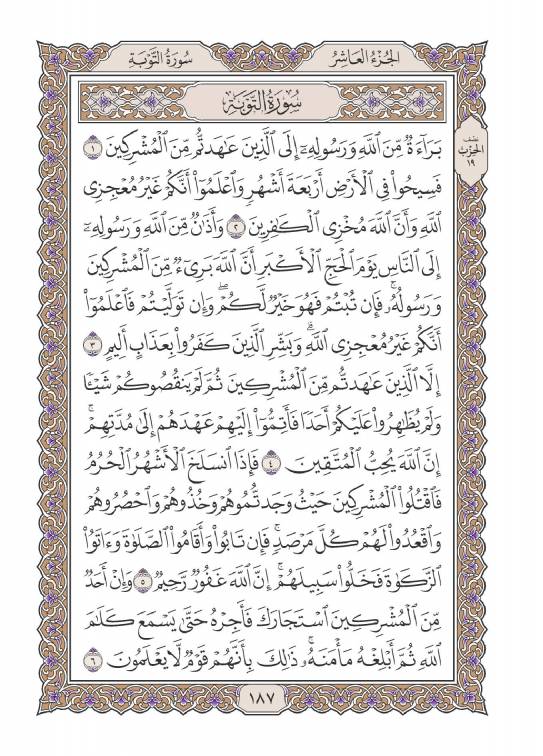 سُورَةُ التَّوْبَةِ
الجُزْءُ العَاشِرُ
نصف
الحِزْب
١٩
سُورَةُ التَّوْبَةِ
بَرَآءَةٌ مِّنَ ٱللَّهِ وَرَسُولِهِۦٓ إِلَى ٱلَّذِينَ عَٰهَدتُّم مِّنَ ٱلْمُشْرِكِينَ ١
فَسِيحُوا۟ فِى ٱلْأَرْضِ أَرْبَعَةَ أَشْهُرٍ وَٱعْلَمُوٓا۟ أَنَّكُمْ غَيْرُ مُعْجِزِى
ٱللَّهِ وَأَنَّ ٱللَّهَ مُخْزِى ٱلْكَٰفِرِينَ ٢ وَأَذَٰنٌ مِّنَ ٱللَّهِ وَرَسُولِهِۦٓ
إِلَى ٱلنَّاسِ يَوْمَ ٱلْحَجِّ ٱلْأَكْبَرِ أَنَّ ٱللَّهَ بَرِىٓءٌ مِّنَ ٱلْمُشْرِكِينَ
وَرَسُولُهُۥ ۚ فَإِن تُبْتُمْ فَهُوَ خَيْرٌ لَّكُمْ ۖ وَإِن تَوَلَّيْتُمْ فَٱعْلَمُوٓا۟
أَنَّكُمْ غَيْرُ مُعْجِزِى ٱللَّهِ ۗ وَبَشِّرِ ٱلَّذِينَ كَفَرُوا۟ بِعَذَابٍ أَلِيمٍ ٣
إِلَّا ٱلَّذِينَ عَٰهَدتُّم مِّنَ ٱلْمُشْرِكِينَ ثُمَّ لَمْ يَنقُصُوكُمْ شَيْـًٔا
وَلَمْ يُظَٰهِرُوا۟ عَلَيْكُمْ أَحَدًا فَأَتِمُّوٓا۟ إِلَيْهِمْ عَهْدَهُمْ إِلَىٰ مُدَّتِهِمْ ۚ
إِنَّ ٱللَّهَ يُحِبُّ ٱلْمُتَّقِينَ ٤ فَإِذَا ٱنسَلَخَ ٱلْأَشْهُرُ ٱلْحُرُمُ
فَٱقْتُلُوا۟ ٱلْمُشْرِكِينَ حَيْثُ وَجَدتُّمُوهُمْ وَخُذُوهُمْ وَٱحْصُرُوهُمْ
وَٱقْعُدُوا۟ لَهُمْ كُلَّ مَرْصَدٍ ۚ فَإِن تَابُوا۟ وَأَقَامُوا۟ ٱلصَّلَوٰةَ وَءَاتَوُا۟
ٱلزَّكَوٰةَ فَخَلُّوا۟ سَبِيلَهُمْ ۚ إِنَّ ٱللَّهَ غَفُورٌ رَّحِيمٌ ٥ وَإِنْ أَحَدٌ
مِّنَ ٱلْمُشْرِكِينَ ٱسْتَجَارَكَ فَأَجِرْهُ حَتَّىٰ يَسْمَعَ كَلَٰمَ
ٱللَّهِ ثُمَّ أَبْلِغْهُ مَأْمَنَهُۥ ۚ ذَٰلِكَ بِأَنَّهُمْ قَوْمٌ لَّا يَعْلَمُونَ ٦
١٨٧